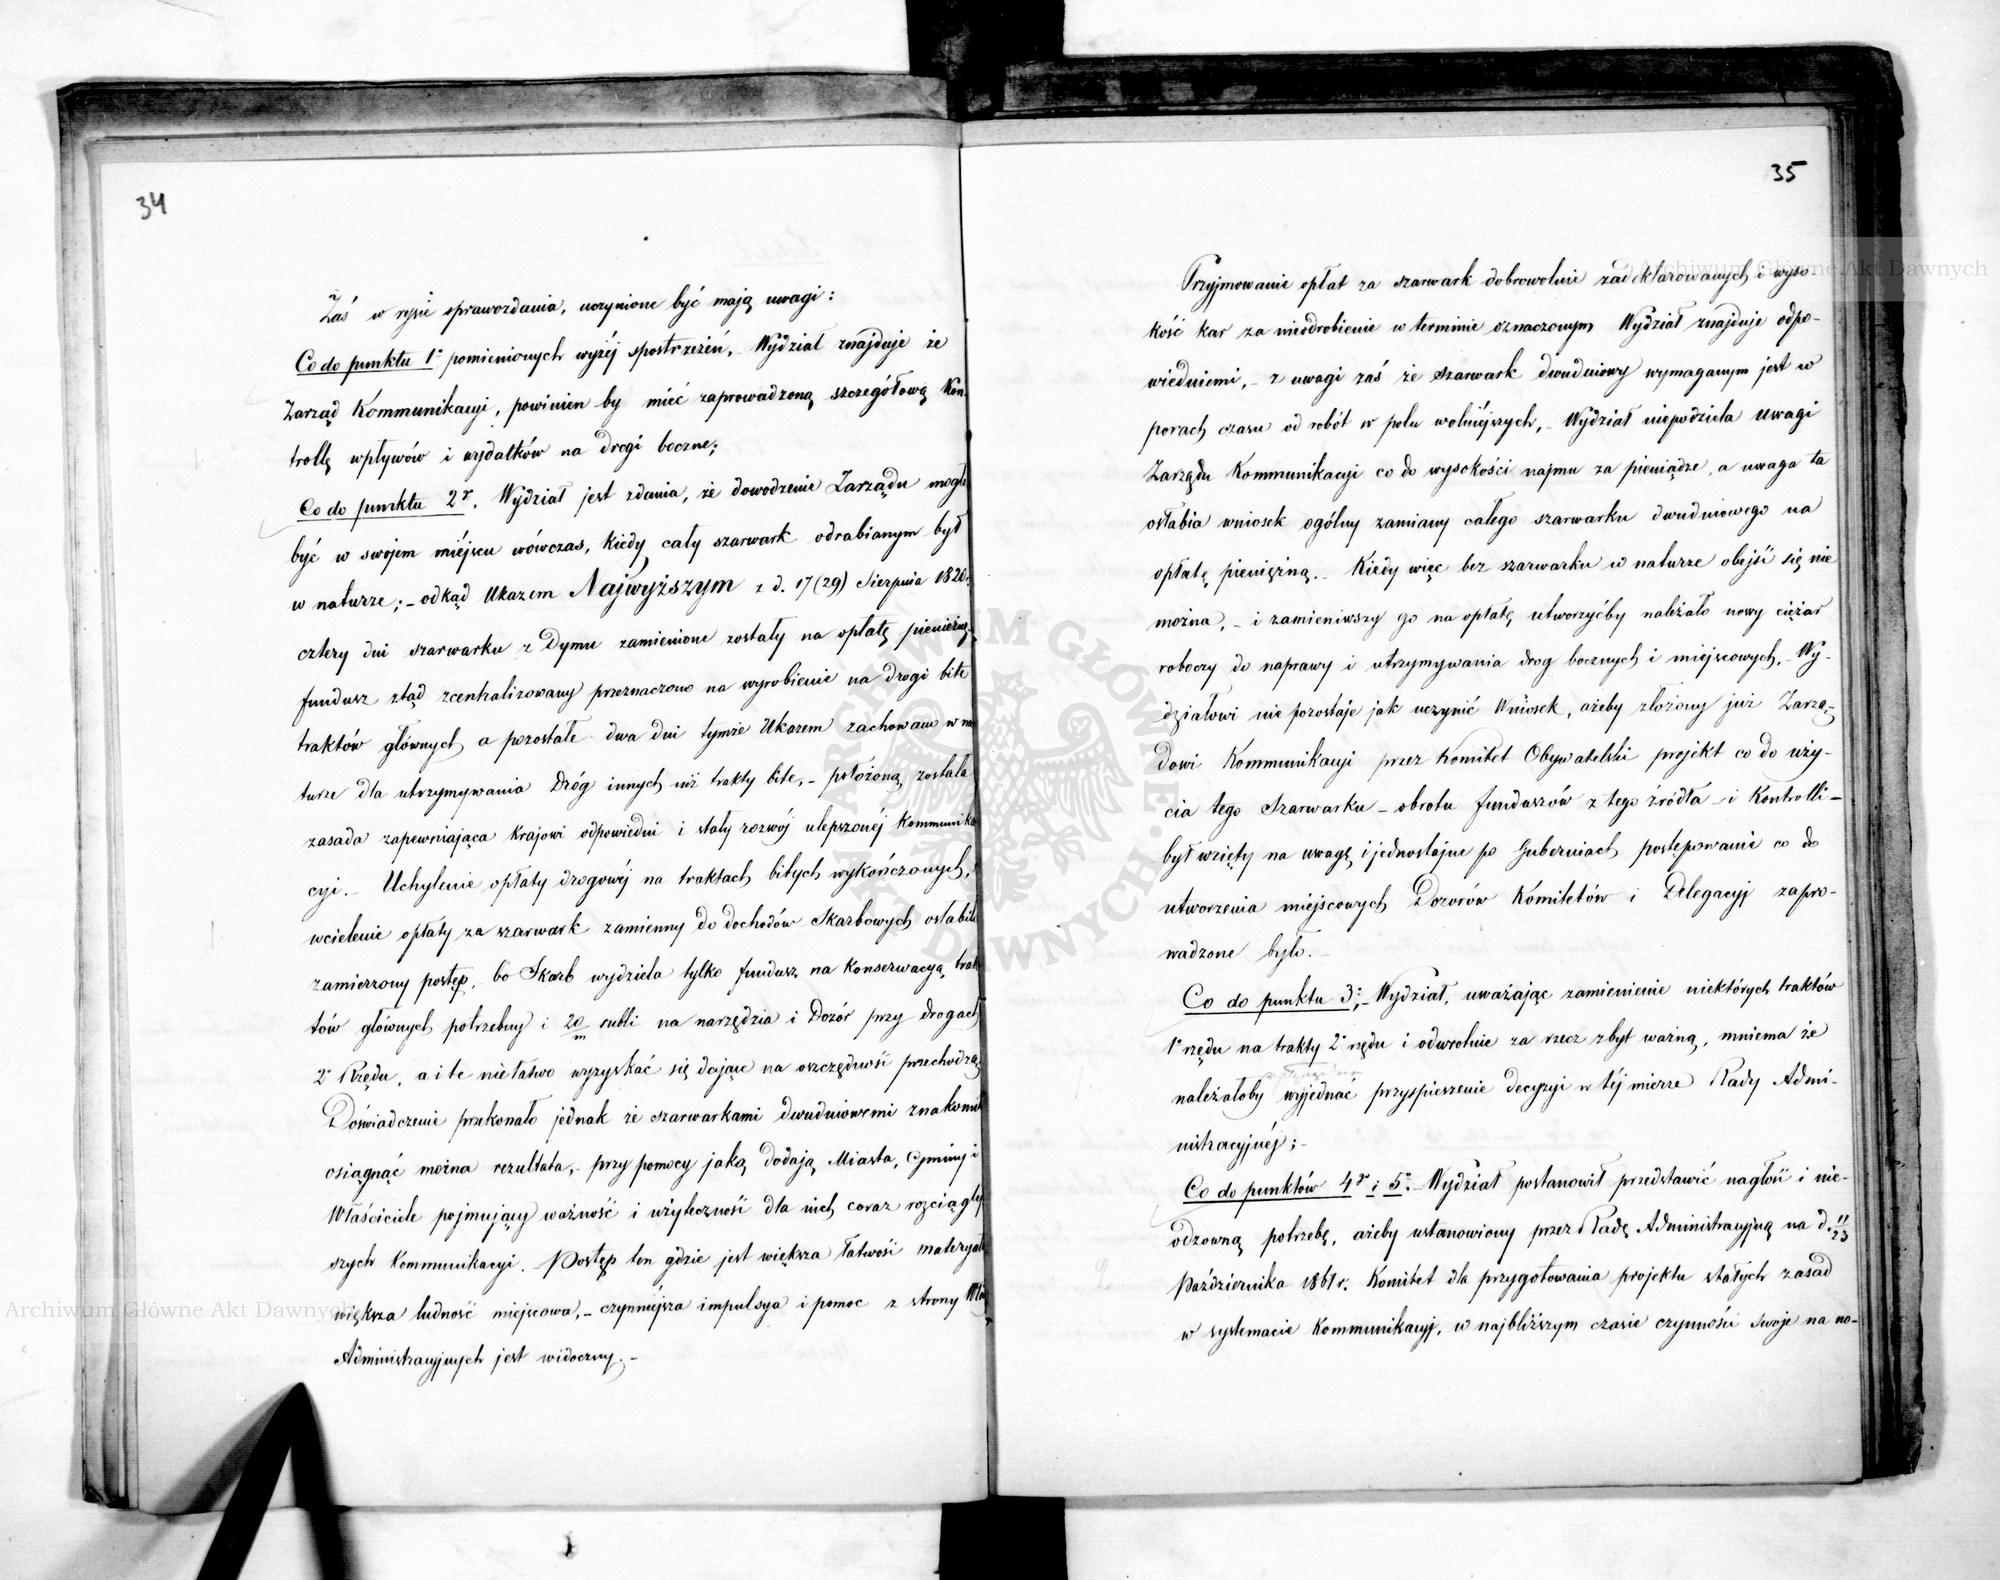 34
Zaś w rysie sprawozdania, uczynione być mają uwagi:
Co do punktu 1º pomienionych wyżéj spostrzeżeń, – Wydział znajduje że
Zarząd Kommunikacyi, powinien by mieć zaprowadzoną szczegółową Kon-
trollę wpływów i wydatków na drogi boczne;
Co do punktu 2º. Wydział jest zdania, że dowodzenie Zarządu mogło
być w swojem miéjscu wówczas, kiedy cały szarwark odrabianym był
w naturze; – odkąd Ukazem Najwyższym z d. 17 (29) Sierpnia 1820.
cztery dni szarwarku z Dymu zamienione zostały na opłatę pieniężną
fundusz ztąd zcentralizowany przeznaczono na wyrobienie na drogi bite
traktów głównych a pozostałe dwa dni tymże Ukazem zachowano w na
turze dla utrzymywania Dróg innych niż trakty bite, – położoną została
zasada zapewniająca Krajowi odpowiedni i stały rozwój ulepszonéj Kommunika
cyi. – Uchylenie opłaty drogowéj na traktach bitych wykończonych,
wcielenie opłaty za szarwark zamienny do dochodów Skarbowych osłabiło
zamierzony postęp, bo Skarb wydziela tylko fundusz na konserwacyą trak
tów głównych potrzebny i 20/m rubli na narzędzia i Dozór przy drogach
2º Rzędu, a i te niełatwo wyzyskać się dające na oszczędności przechodzą
Doświadczenie przekonało jednak że szarwarkami dwudniowemi znakomite
osiągnąć można rezultata, – przy pomocy jaką dodają Miasta, Gminy i
Właściciele pojmujący ważność i użyteczność dla nich coraz rozciągley
szych Kommunikacyi. Postęp ten gdzie jest większa łatwość materyał
większa ludność miejscowa, – czynniéjsza impulsya i pomoc z strony Wła
Administracyjnych jest widoczny. –
35
Przyjmowanie opłat za szarwark dobrowolnie zadeklarowanych i wyso
kość kar za nieodrobienie w terminie oznaczonym Wydział znajduje odpo-
wiedniemi, – z uwagi zaś że Szarwark dwudniowy wymaganym jest w
porach czasu od robót w polu wolniéjszych, – Wydział niepodziela uwagi
Zarządu Kommunikacyi co do wysokości najmu za pieniądze, a uwaga ta
osłabia wniosek ogólny zamiany całego szarwarku dwudniowego na
opłatę pieniężną. – Kiedy więc bez szarwarku w naturze obejść się nie
można, – i zamieniwszy go na opłatę utworzyćby należało nowy ciężar
roboczy do naprawy i utrzymywania dróg bocznych i miejscowych, – Wy-
działowi nie pozostaje jak uczynić Wniosek, ażeby złożony już Zarzą-
dowi Kommunikacyi przez Komitet Obywatelski projekt co do uży-
cia tego Szarwarku – obrotu funduszów z tego źródła – i Kontrolli –
był wzięty na uwagę i jednostajne po Guberniach postępowanie co do
utworzenia miejscowych Dozorów Komitetów i Delegacyj zapro-
wadzone było. –
Co do punktu 3º; – Wydział, uważając zamienienie niektórych traktów
1º rzędu na trakty 2º rzędu i odwrotnie za rzecz zbyt ważną, mniema że
należałoby wyjednać przyspieszenie decyzyi w téj mierze Rady Admi-
nistracyjnéj; –
Co do punktów 4º i 5º. Wydział postanowił przedstawić nagłość i nie-
odzowną potrzebę, ażeby ustanowiony przez Radę Administracyjną na d. 11/23
Października 1861 r. Komitet dla przygotowania projektu stałych zasad
w systemacie Kommunikacyj, w najbliższym czasie czynności swoje na no-
Archiwum Główne Akt Dawnych
Archiwum Główne Akt Dawnych
ARCHIWUM GŁÓWNE AKT DAWNYCH